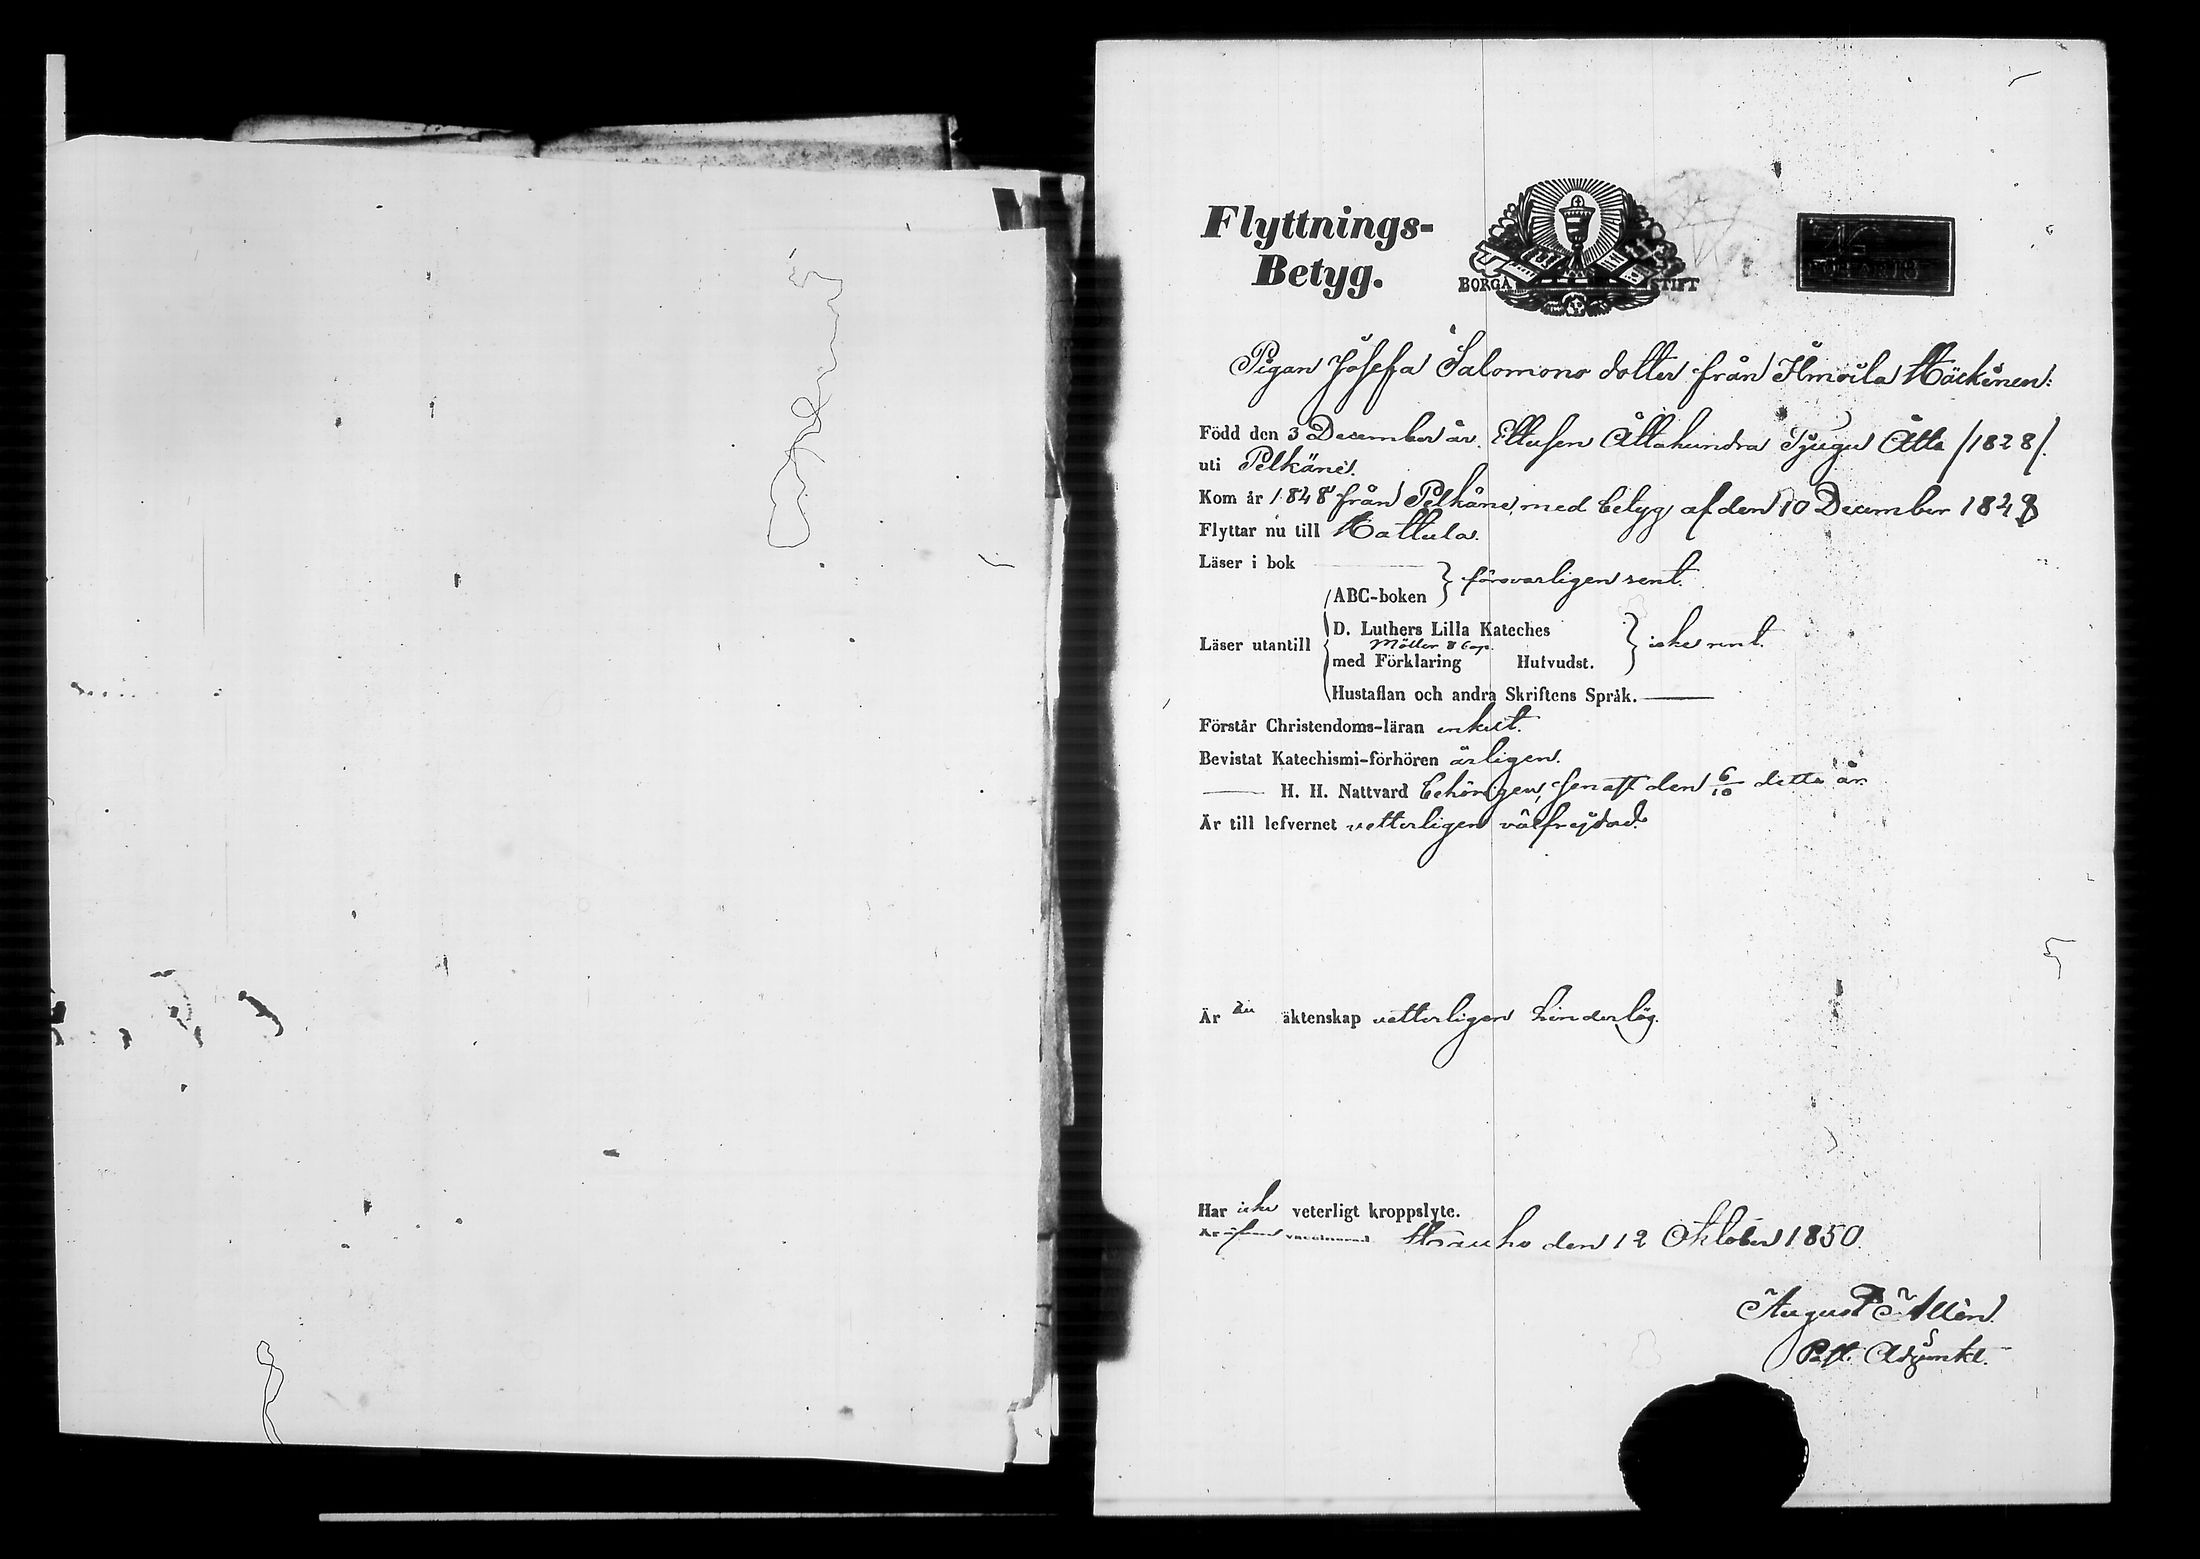 Flyttnings-
Betyg.
BORGÅ STIFT
Pigan Josefa Salomons dotter från Ilmoila Mäckönen:
Född den 3 December år. Ettusen Åttahundra Tjugu Åtta /1828/.
uti Pelkäne.
Kom år 1848 från Pelkäne, med betyg af den 10 December 1848
Flyttar nu till Hattula.
Läser i bok
ABC-boken } försvarligen rent.
D. Luthers Lilla Kateches
Läser utantill Möller 8 Cap. } icke rent.
med Förklaring Hufvudst.
Hustaflan och andra Skriftens Språk.
Förstår Christendoms-läran enkelt.
Bevistat Katechismi-förhören årligen.
H. H. Nattvard behörigen, senast den 6/10 detta år.
Är till lefvernet vetterligen välfrejdad.
Är till äktenskap vetterligen hinderlög.
Har icke veterligt kroppslyte.
Är vaccinerad. Hauho den 12 Oktober 1850.
August Allén.
Past. Adjunkt.